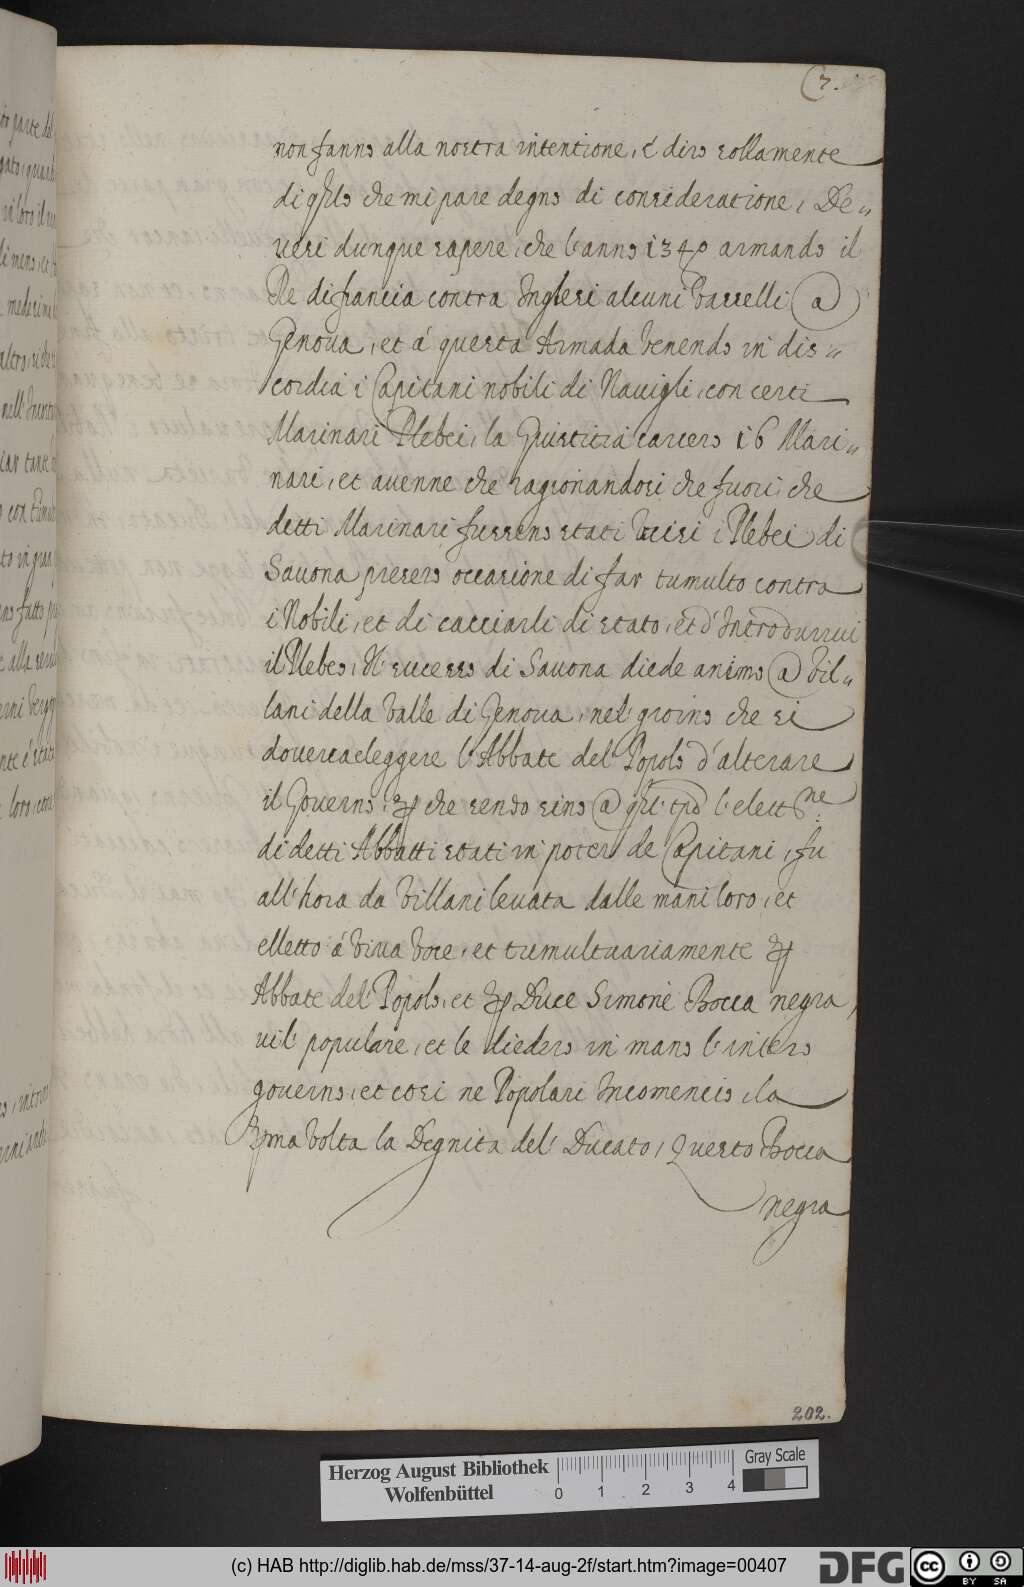 (7.
non fanno alla nostra intentione, è dirò sollamente
di qllo che mi pare degno di consideratione, De„
uesi dunque sapere, che l'anno 1340 armando il
Re di francia contra Inglesi alcuni Vasselli @
Genoua, et á questa Armada Venendo in dis„
cordia i Capitani nobili di Nauigli, con certi
Marinari Plebei, la Giustitia carcerò 16 Mari„
nari, et auenne che ragionandosi che fuori che
detti Marinari fusseno stati Vccisi i Plebei di
Sauona presero occasione di far tumulto contra
i Nobili, et di cacciarli di stato, et d'Introdurrui
il Plebeo, Il sucesso di Sauona diede animo @ Vil„
lani della Valle di Genoua, nel giorno che si
doueua eleggere l'Abbate del Popolo d'alterare
il Gouerno, che sendo sino @ ql tpo l'elettne
di detti Abbatti stati in poter de Capitani, fu
all'hora da Villani leuata dalle mani loro, et
elletto á Viua Voce, et tumultuariamente
Abbate del Popolo, et Duce Simone Bocca negra,
uil populare, et le diedero in mano l'intero
gouerno, et cosi ne Popolari Incomenciò, la
pma Volta la Degnita del Ducato, Questo Bocca
negra
202.
Herzog August Bibliothek
Wolfenbüttel
0 1 2 3 4
Gray Scale
(c) HAB http://diglib.hab.de/mss/37-14-aug-2f/start.htm?image=00407
DFG
cc BY SA